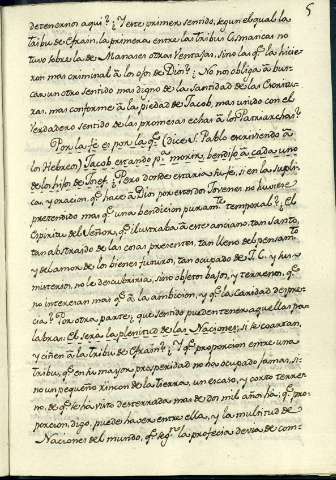 5
detenernos aqui? ¿Y este primer sentido, segun el qual la
tribu de Efrain, la primera entre las tribus Cismancas no
tuvo sobre la de Manases otras ventajas, sino las qe. la hicie-
ron mas criminal à los ojos de Dios? ¿No nos obliga à bus-
car un otro sentido mas digno de la santidad de las Escritu-
ras, mas conforme à la piedad de Jacob, mas unido con el
verdadero sentido de las promesas echas à los Patriarchas?
Por la fe es, por la qe. (dice S. Pablo escriviendo à
los Hebreos) Jacob estando pa. morir, bendijo à cada uno
de los hijos de Josef. ¿Pero donde estaria su fe, si en la supli-
ca, y oracion, qe. hace à Dios por estos dos Jovenes no huviese
pretendido mas qe. una bendicion puramte. temporal? ¿El
Espiritu del Señor, qe. ilustraba à este anciano, tan santo,
tan abstraido de las cosas presentes, tan lleno del pensamto.
y del amor de los bienes futuros, tan ocupado de J. C. y sus
misterios, no le descubriria, sino objetos bajos, y terrenos, qe.
no interesan mas qe. à la ambicion, y qe. la caridad despre-
cia? Por otra parte; que sentido pueden tener aquellas pa-
labras: El serà la plenitud de las Naciones; si se coartan,
y ciñen à la tribu de Efrain? ¿Y qe. proporcion entre una
tribu, qe. en su mayor prosperidad no ha ocupado jamas, si-
no un pequeño rincon de la tierra, un escaso, y corto terre-
no, de qe. se ha visto desterrada mas de dos mil años ha; qe. pro-
porcion, digo, puede haver entre ella, y la multitud de
Naciones del mundo, qe. segn. la profecia devia de com-